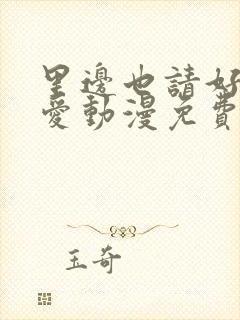 里邊也請好
愛動漫免費
玉奇